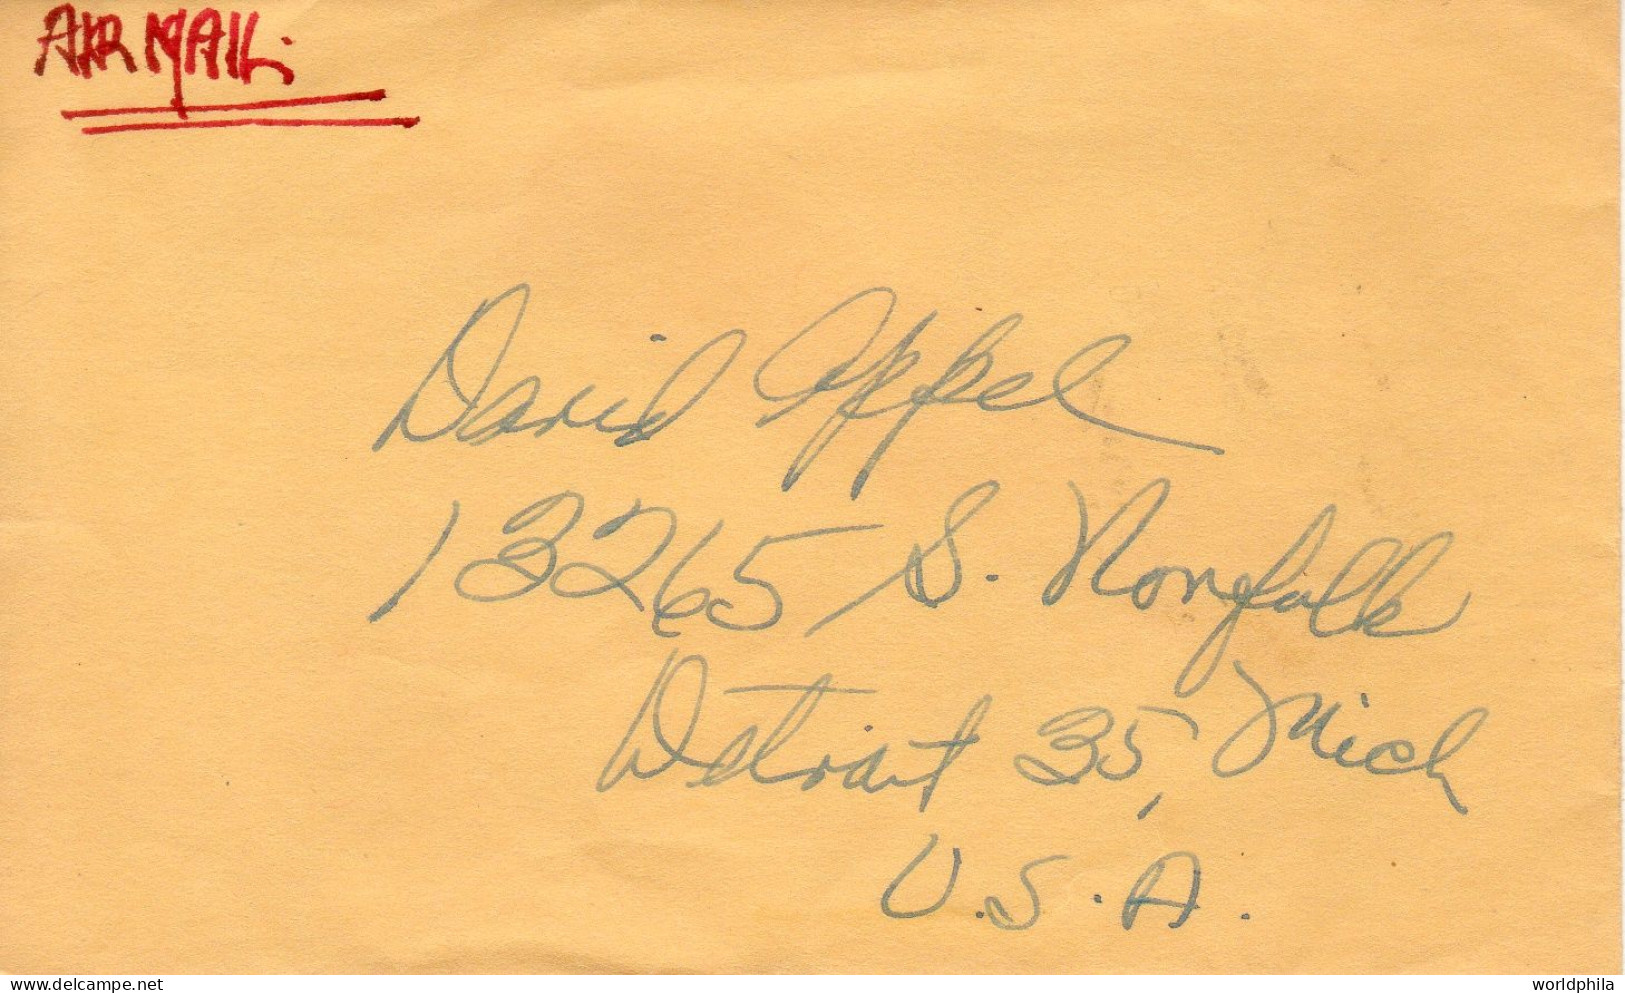 AIR MAIL.
David Appel
13265 S. Norfolk
Detroit 35, Mich
U.S.A.
delcampe.net
worldphila